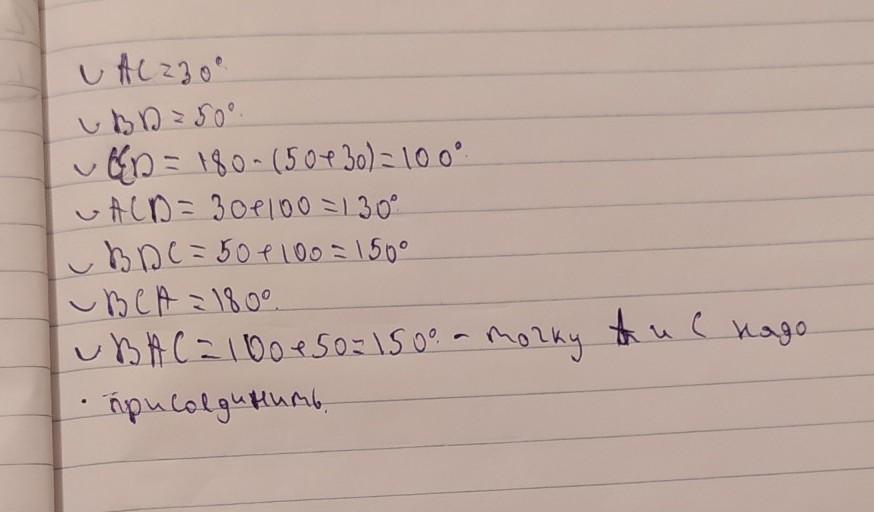 ◡ AC=30°.
◡ BD=50°.
◡ CD= 180-(50+30)=100°.
◡ ACD= 30+100=130°
◡ BDC=50+100=150°
◡ BCA=180°.
◡ BAC=100+50=150°. - точку A и C надо
· присоединить.